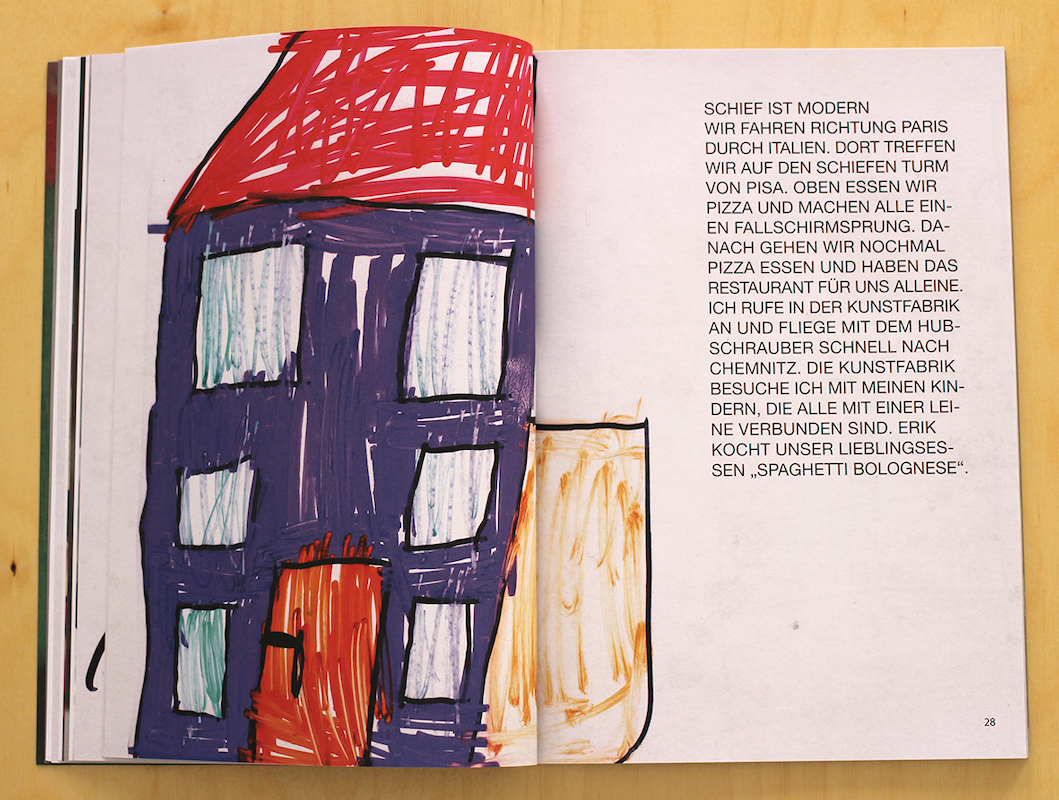 SCHIEF IST MODERN
WIR FAHREN RICHTUNG PARIS
DURCH ITALIEN. DORT TREFFEN
WIR AUF DEN SCHIEFEN TURM
VON PISA. OBEN ESSEN WIR
PIZZA UND MACHEN ALLE EIN-
EN FALLSCHIRMSPRUNG. DA-
NACH GEHEN WIR NOCHMAL
PIZZA ESSEN UND HABEN DAS
RESTAURANT FÜR UNS ALLEINE.
ICH RUFE IN DER KUNSTFABRIK
AN UND FLIEGE MIT DEM HUB-
SCHRAUBER SCHNELL NACH
CHEMNITZ. DIE KUNSTFABRIK
BESUCHE ICH MIT MEINEN KIN-
DERN, DIE ALLE MIT EINER LEI-
NE VERBUNDEN SIND. ERIK
KOCHT UNSER LIEBLINGSES-
SEN „SPAGHETTI BOLOGNESE“.
28